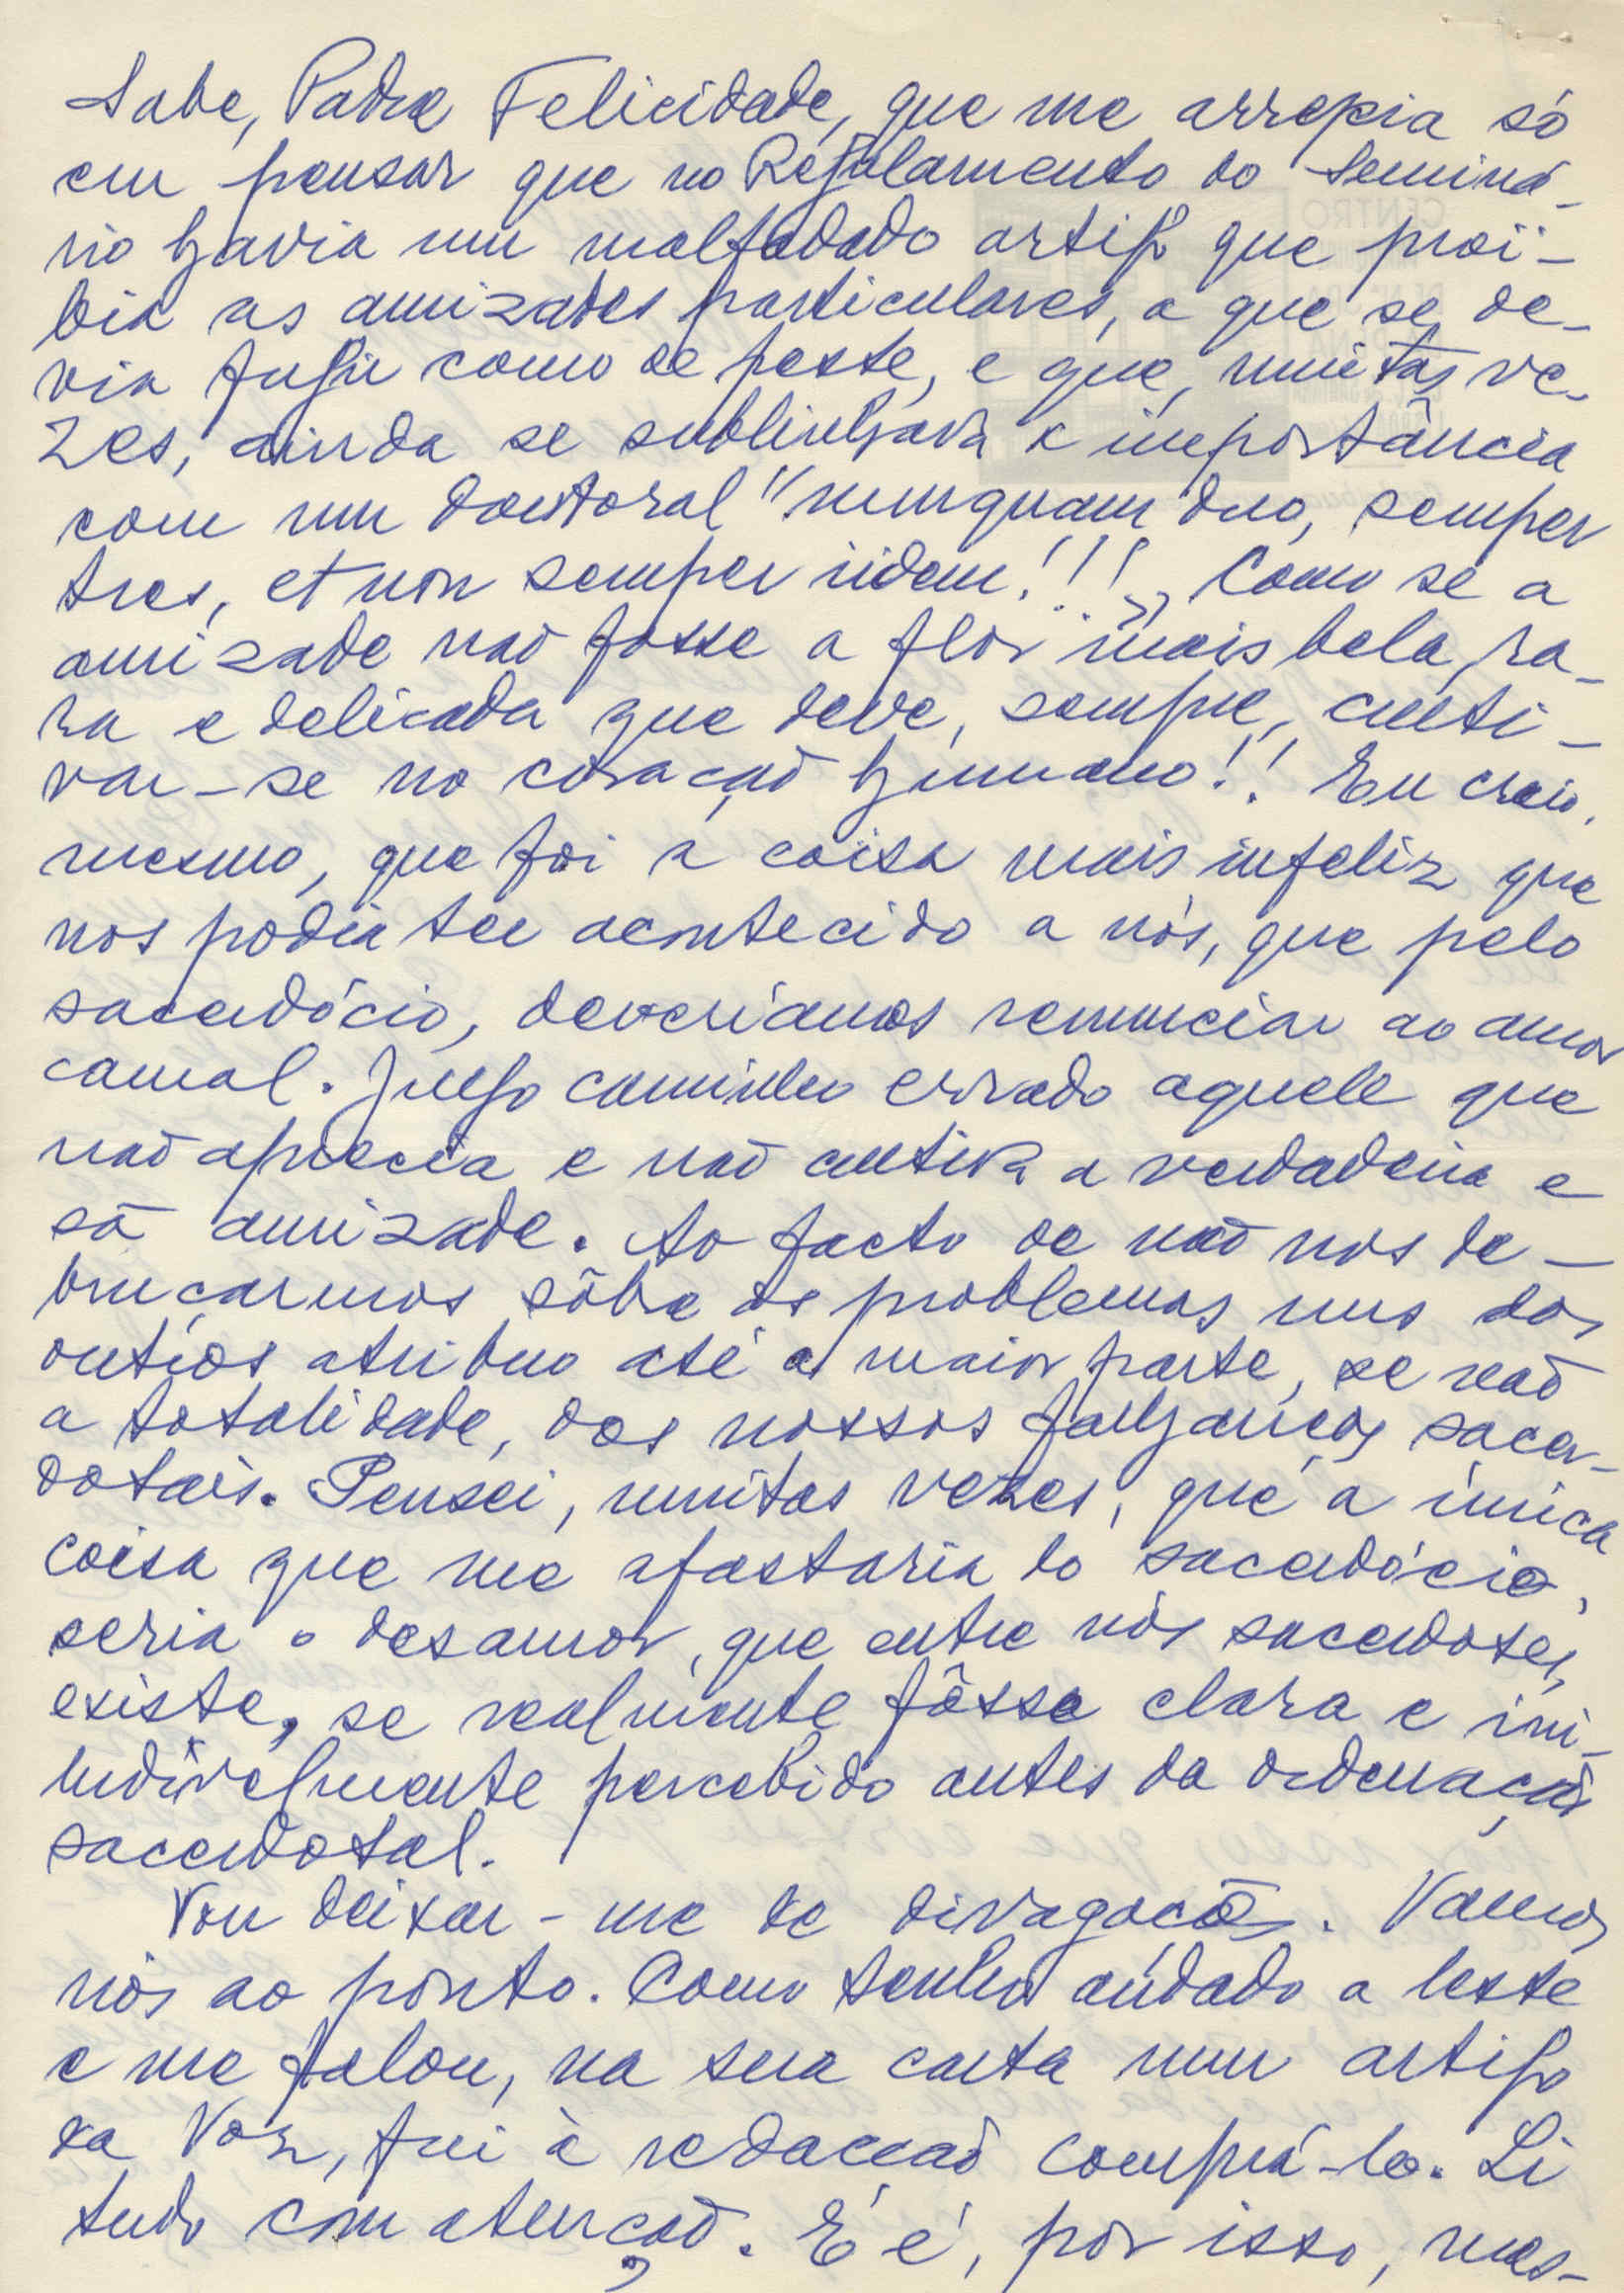 Sabe, Padre Felicidade, que me arrepia só
em pensar que no Regulamento do Seminá-
rio havia um malfadado artigo que proï-
bia as amizades particulares, a que se de-
via fugir como de peste, e que, muitas ve-
zes, ainda se sublinhava a importância
com um doutoral "nunquam duo, semper
tres, et non semper iidem!!!" Como se a
amizade não fosse a flor mais bela, ra-
ra e delicada que deve, sempre, culti-
var-se no coração humano!! Eu creio,
mesmo, que foi a coisa mais infeliz que
nos podia ter acontecido a nós, que pelo
sacerdócio, deveríamos renunciar ao amor
carnal. Julgo caminho errado aquele que
não aprecia e não cultiva a verdadeira e
sã amizade. Ao facto de não nos de-
bruçarmos sôbre os problemas uns dos
outros atribuo até a maior parte, se não
a totalidade, dos nossos falhanços sacer-
dotais. Pensei, muitas vezes, que a única
coisa que me afastaria do sacerdócio,
seria o desamor, que entre nós sacerdotes,
existe, se realmente fôsse clara e ini-
ludìvelmente percebido antes da ordenação
sacerdotal.
Vou deixar-me de divagações. Vamos
nós ao ponto. Como tenho andado a leste
e me falou, na sua carta num artigo
da Voz, fui à redacção comprá-lo. Li
tudo com atenção. E é, por isso, mes-